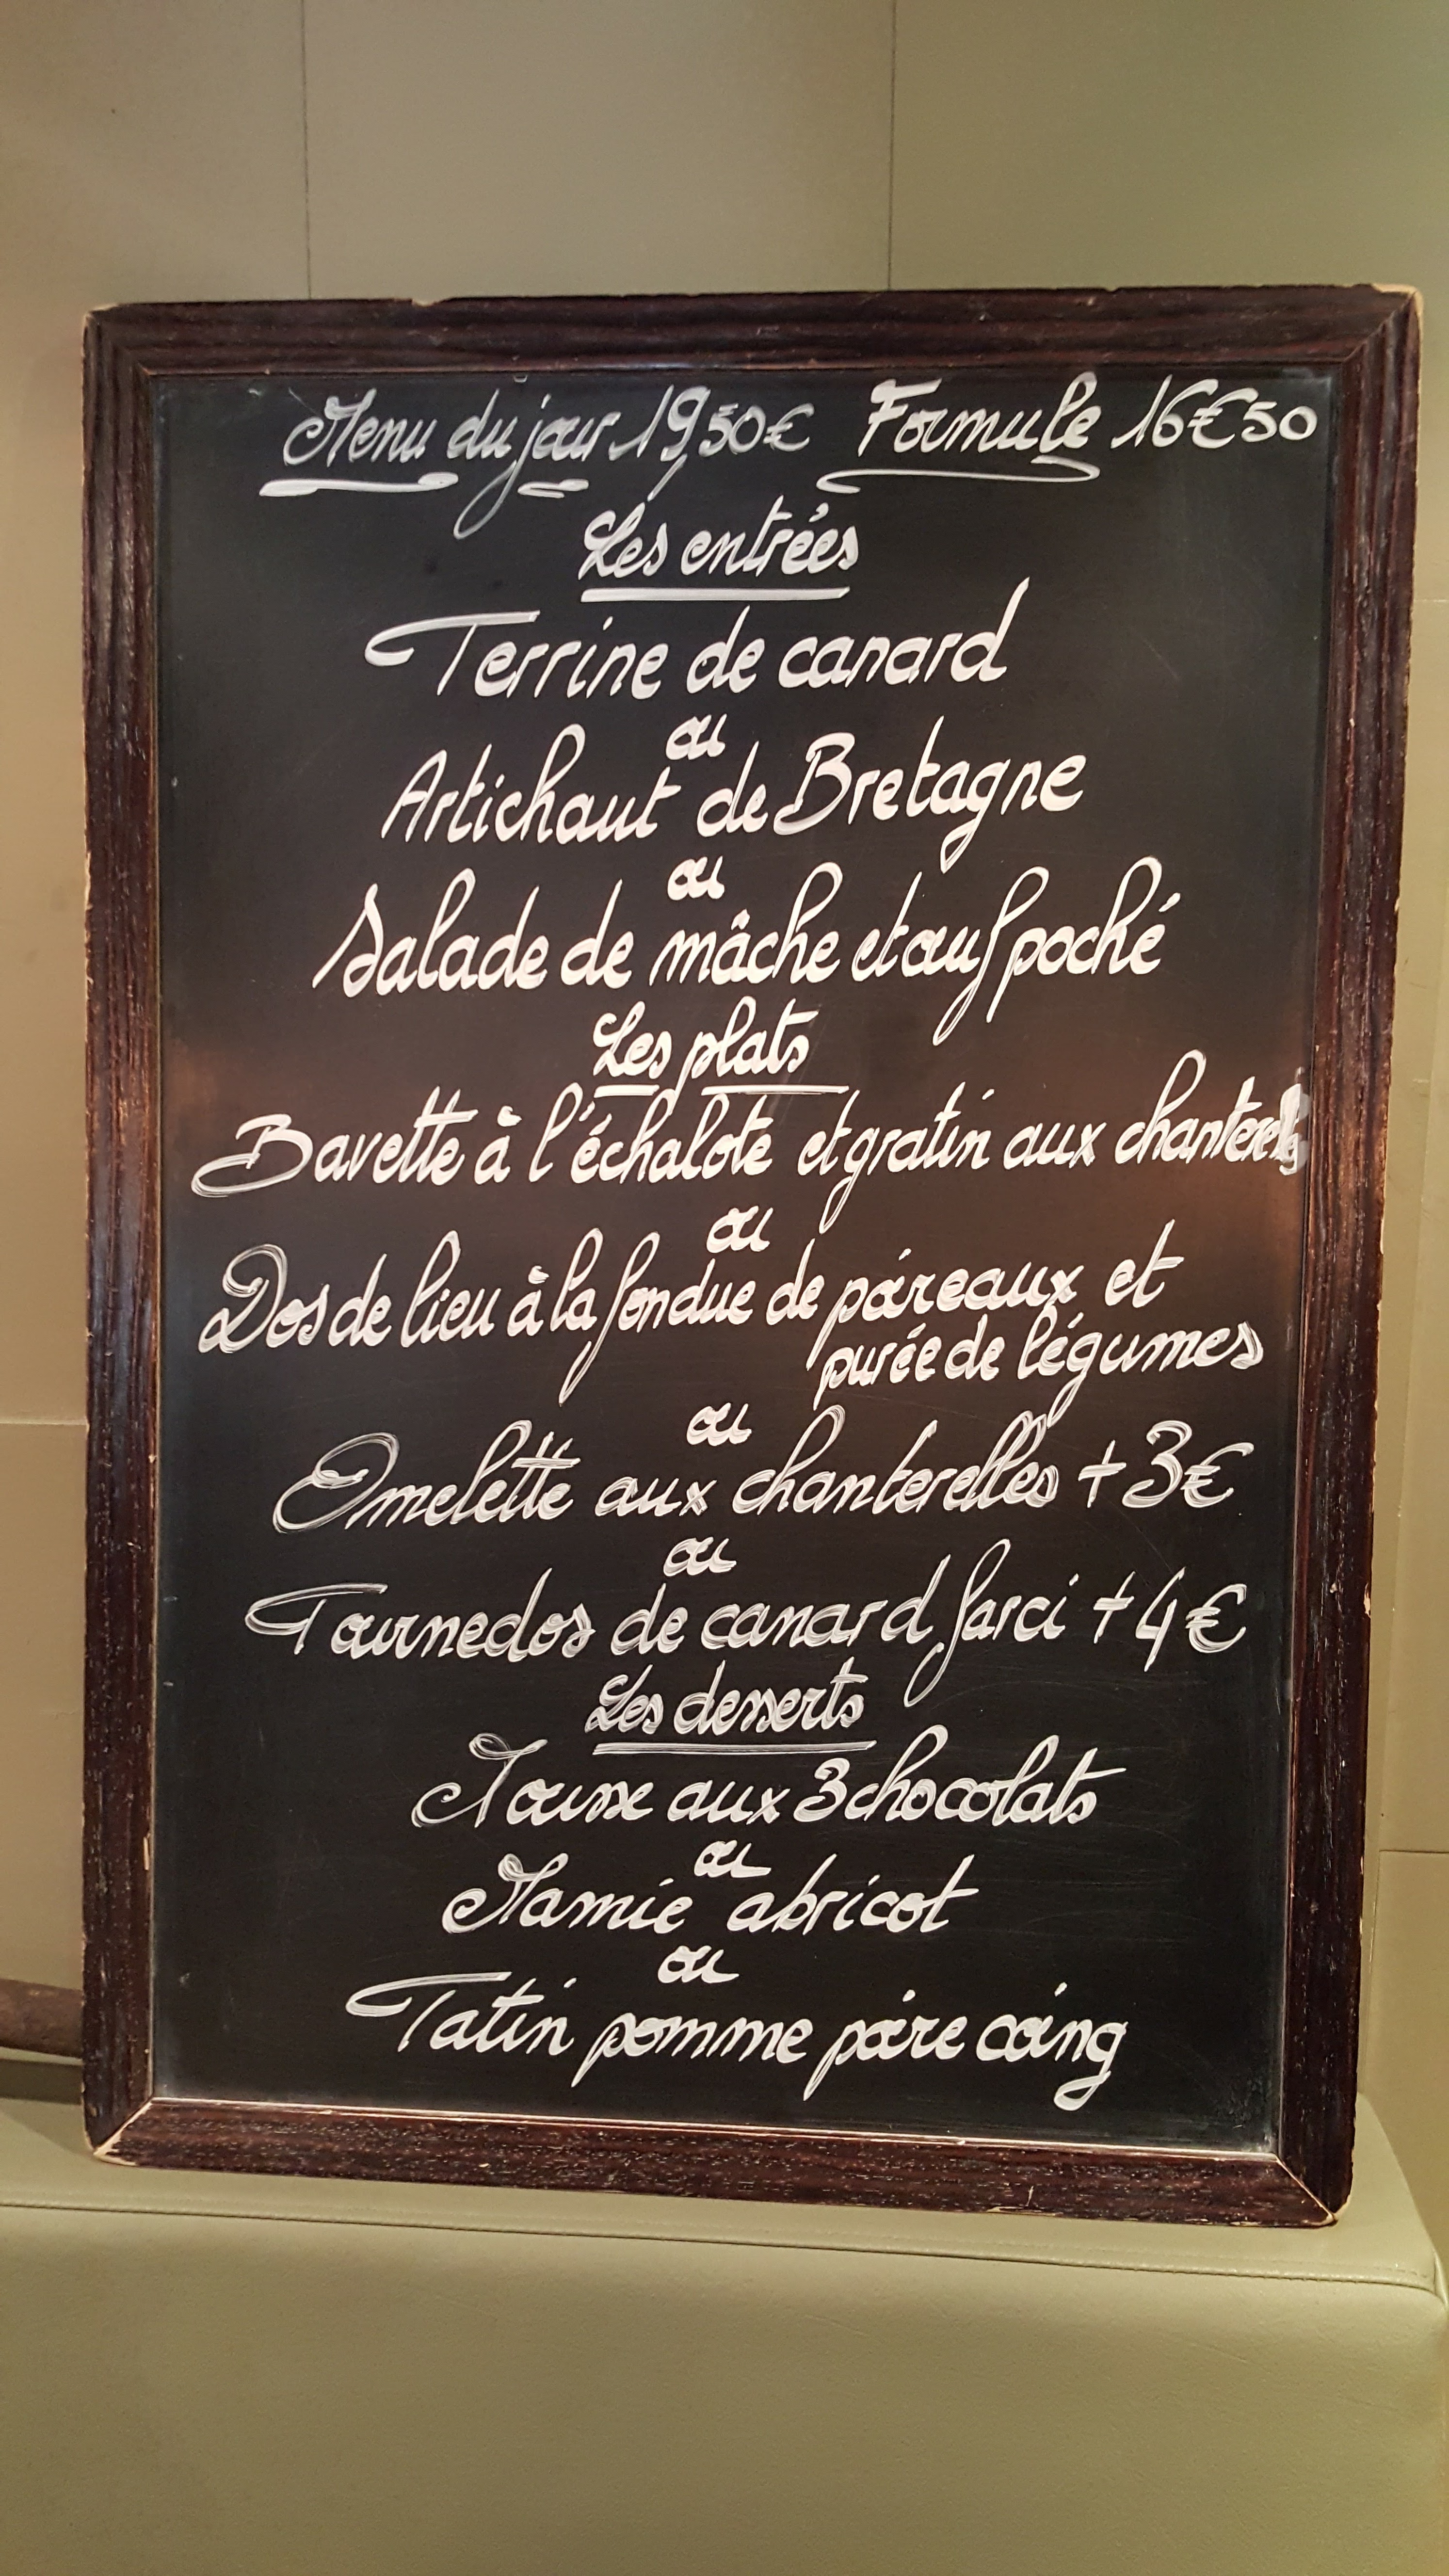 Menu du jour 19,50€ Formule 16€50
Les entrées
Terrine de canard
ou
Artichaut de Bretagne
ou
Salade de mâche et œuf poché
Les plats
Bavette à l'échalote et gratin aux chanterelles
ou
Dos de lieu à la fondue de poireaux et
purée de légumes
ou
Omelette aux chanterelles + 3€
ou
Tournedos de canard farci + 4€
Les desserts
Mousse aux 3 chocolats
ou
Mamie abricot
ou
Tatin pomme poire coing